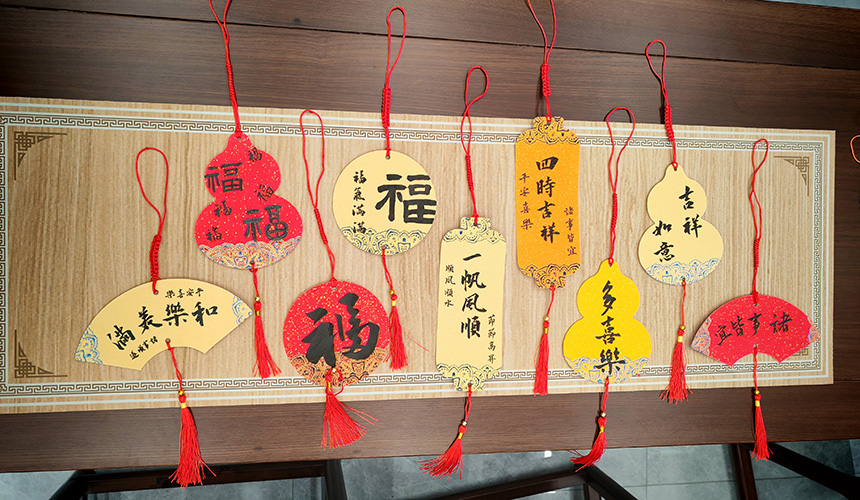 平安喜樂
和樂美滿
諸事順遂
福
福
福
福
福
福
福
福氣滿滿
福
節節高昇
一帆風順
順風順水
諸事皆宜
四時吉祥
平安喜樂
多喜樂
吉祥
如意
諸事皆宜